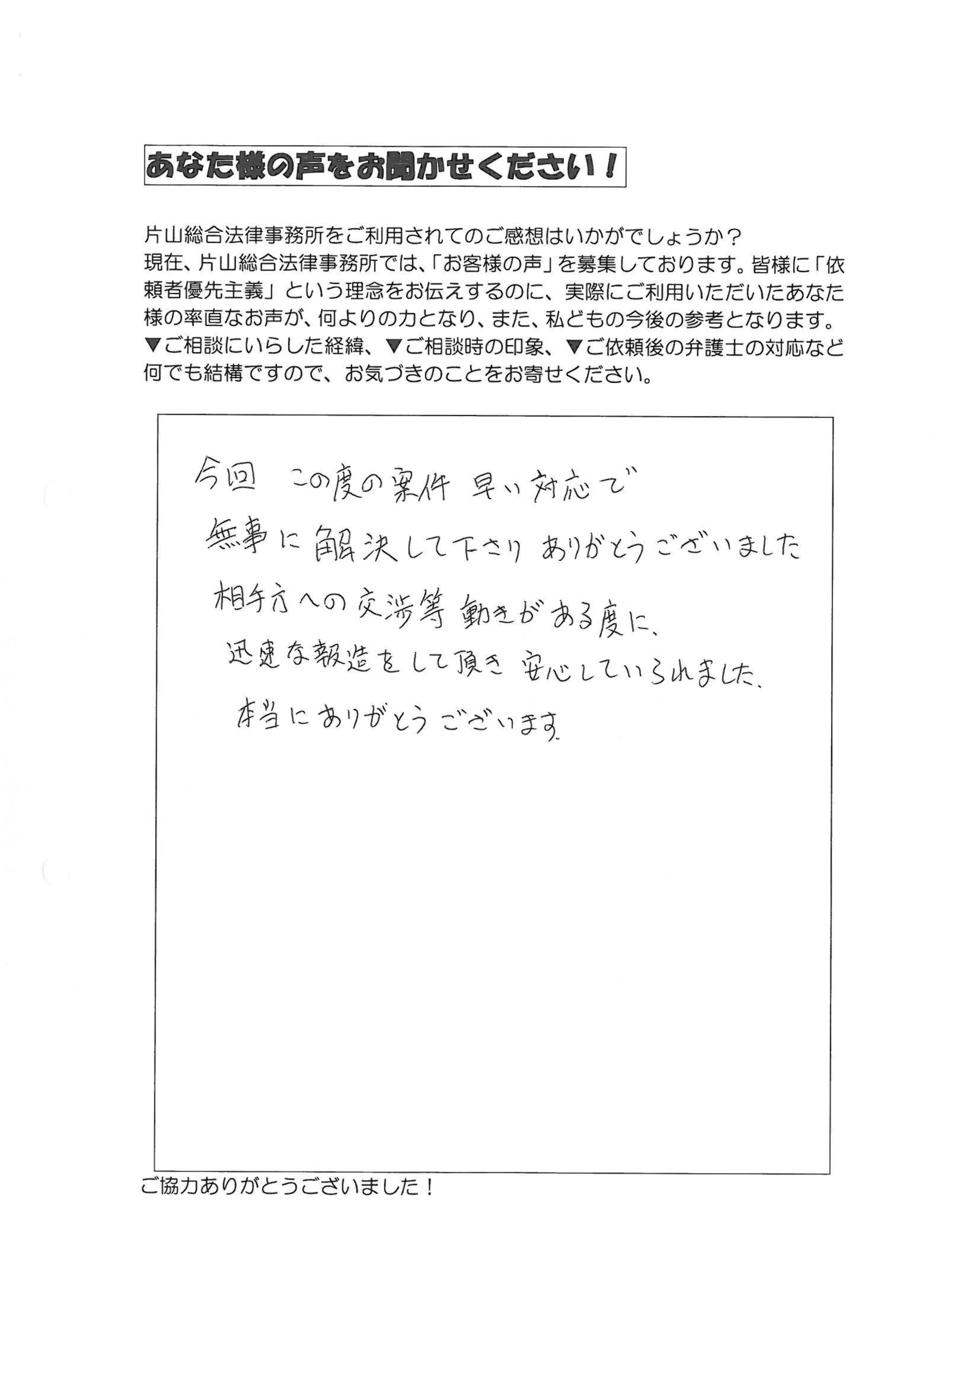 あなた様の声をお聞かせください！
片山総合法律事務所をご利用されてのご感想はいかがでしょうか？
現在、片山総合法律事務所では、「お客様の声」を募集しております。皆様に「依
頼者優先主義」という理念をお伝えするのに、実際にご利用いただいたあなた
様の率直なお声が、何よりの力となり、また、私どもの今後の参考となります。
▼ご相談にいらした経緯、▼ご相談時の印象、▼ご依頼後の弁護士の対応など
何でも結構ですので、お気づきのことをお寄せください。
今回 この度の案件 早い対応で
無事に解決して下さり ありがとうございました
相手方への交渉等 動きがある度に、
迅速な報造をして頂き 安心していられました、
本当にありがとうございます.
ご協力ありがとうございました！